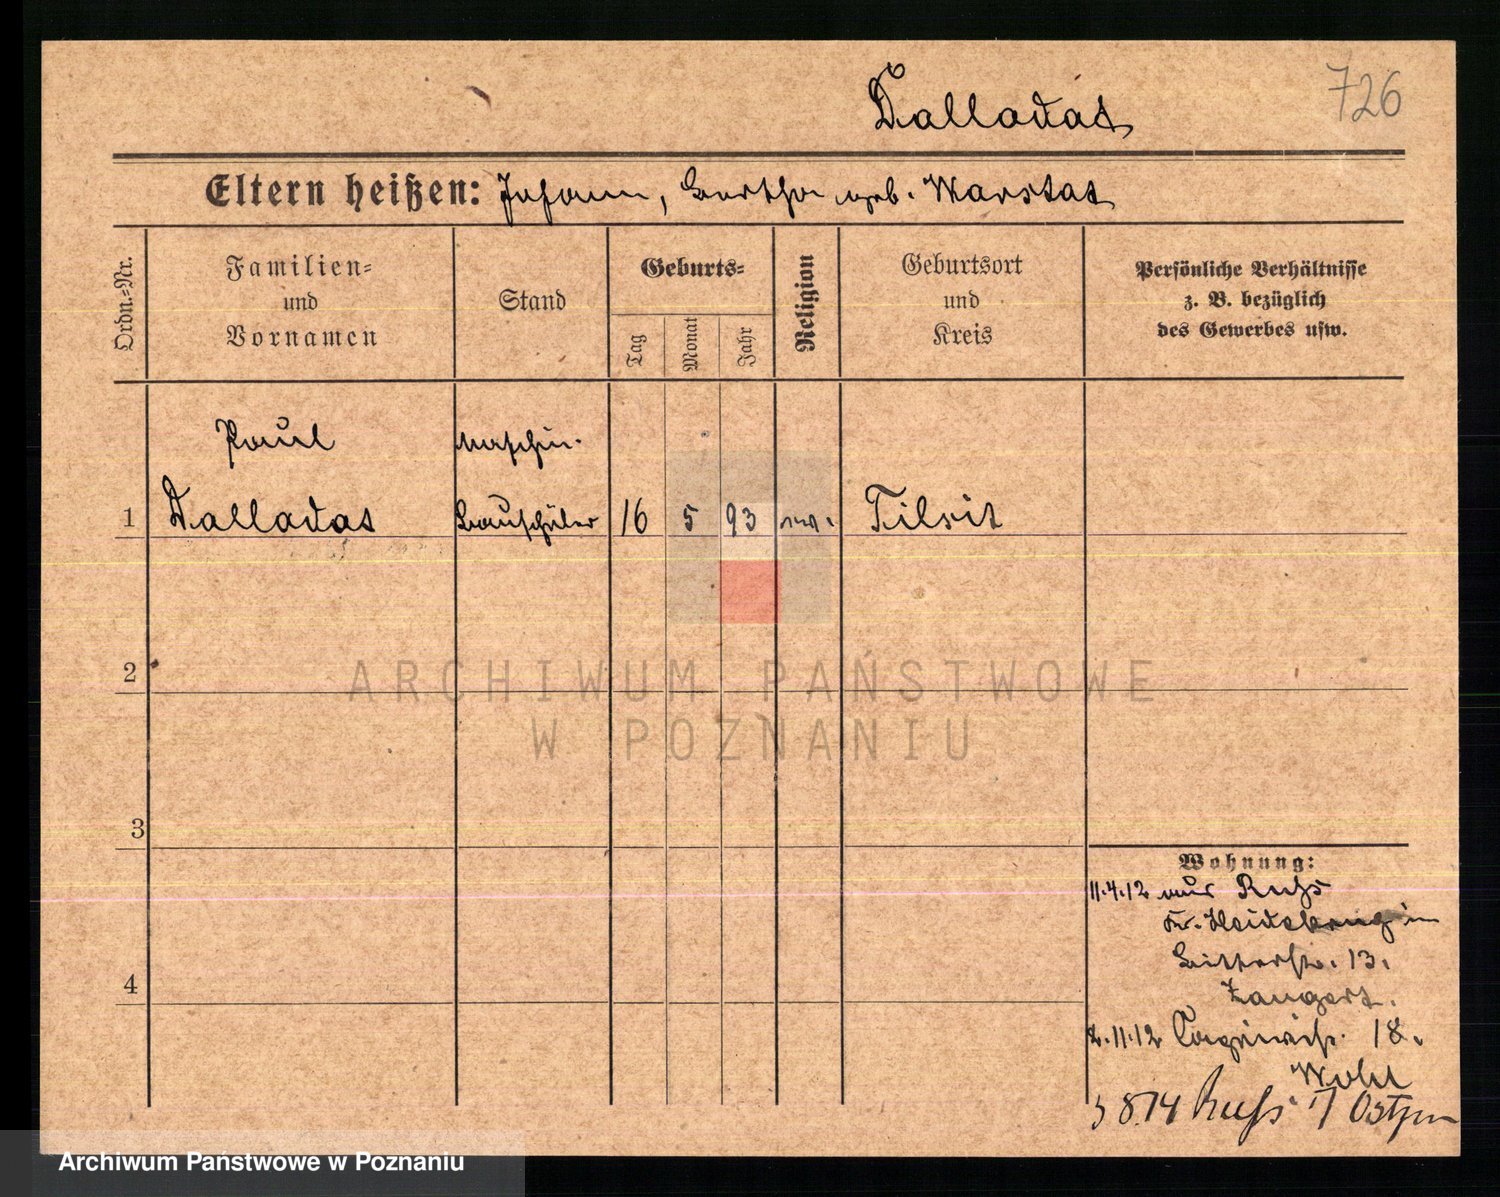 726
Dalladas
Eltern heißen: Johann, Bertha geb. Warstat
Ordn.-Nr.
Familien-
und
Vornamen
Stand
Geburts-
Tag
Monat
Jahr
Religion
Geburtsort
und
Kreis
Persönliche Verhältnisse
z. B. bezüglich
des Gewerbes usw.
Paul Maschin.
1 Dalladas Bauschüler 16 5 93 ev. Tilsit
2
ARCHIWUM PAŃSTWOWE
W POZNANIU
3
Wohnung:
11.4.12 aus Ruß
Kr. Heidekrug in
Bitterstr. 13.
4
2.11.12 18.
Wohl
3 8.14 Ruß i/ Ostpr
Archiwum Państwowe w Poznaniu